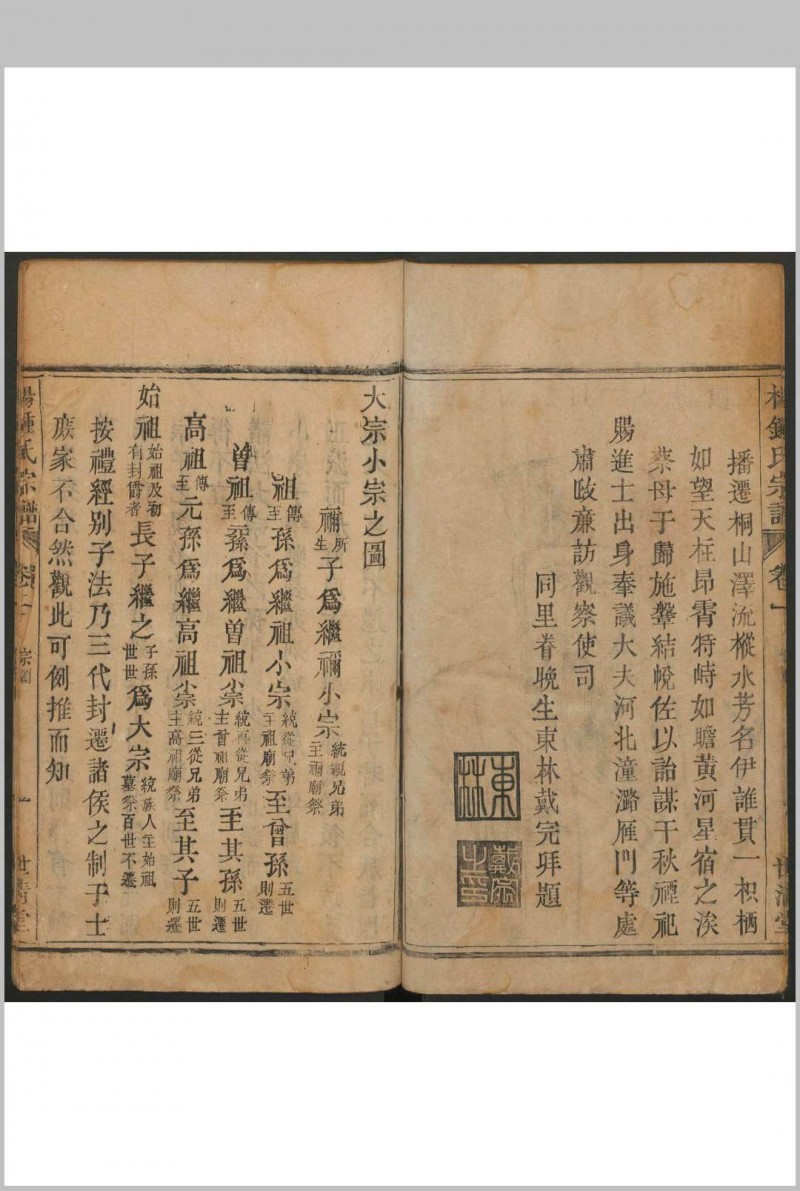 鍾氏宗譜 卷一
播遷桐山澤流樅水芳名伊誰貫一枳栖
如望天柱昂霄特峙如瞻黃河星宿之涘
於母于歸施鞶結帨佐以詒謀千秋禋祀
賜進士出身奉議大夫河北潼潞雁門等處
肅政廉訪觀察使司
同里眷晚生東林戴完拜題
東林
戴完之印
大宗小宗之圖
禰所生子爲繼禰小宗統親兄弟主禰廟祭
祖傳至孫爲繼祖小宗統從兄弟主祖廟祭至曾孫五世則遷
曾祖傳至孫爲繼曽祖小宗統再從兄弟主曾祖廟祭至其孫五世則遷
高祖傳至元孫爲繼高祖小宗統三從兄弟主高祖廟祭至其子五世則遷
始祖始祖及初有封爵者長子繼之子孫世世爲大宗統族人主始祖墓祭百世不遷
按禮經别子法乃三代封遷諸侯之制于士
庶家不合然觀此可例推而知
鍾氏宗譜 卷二 宗圖 一 世清堂